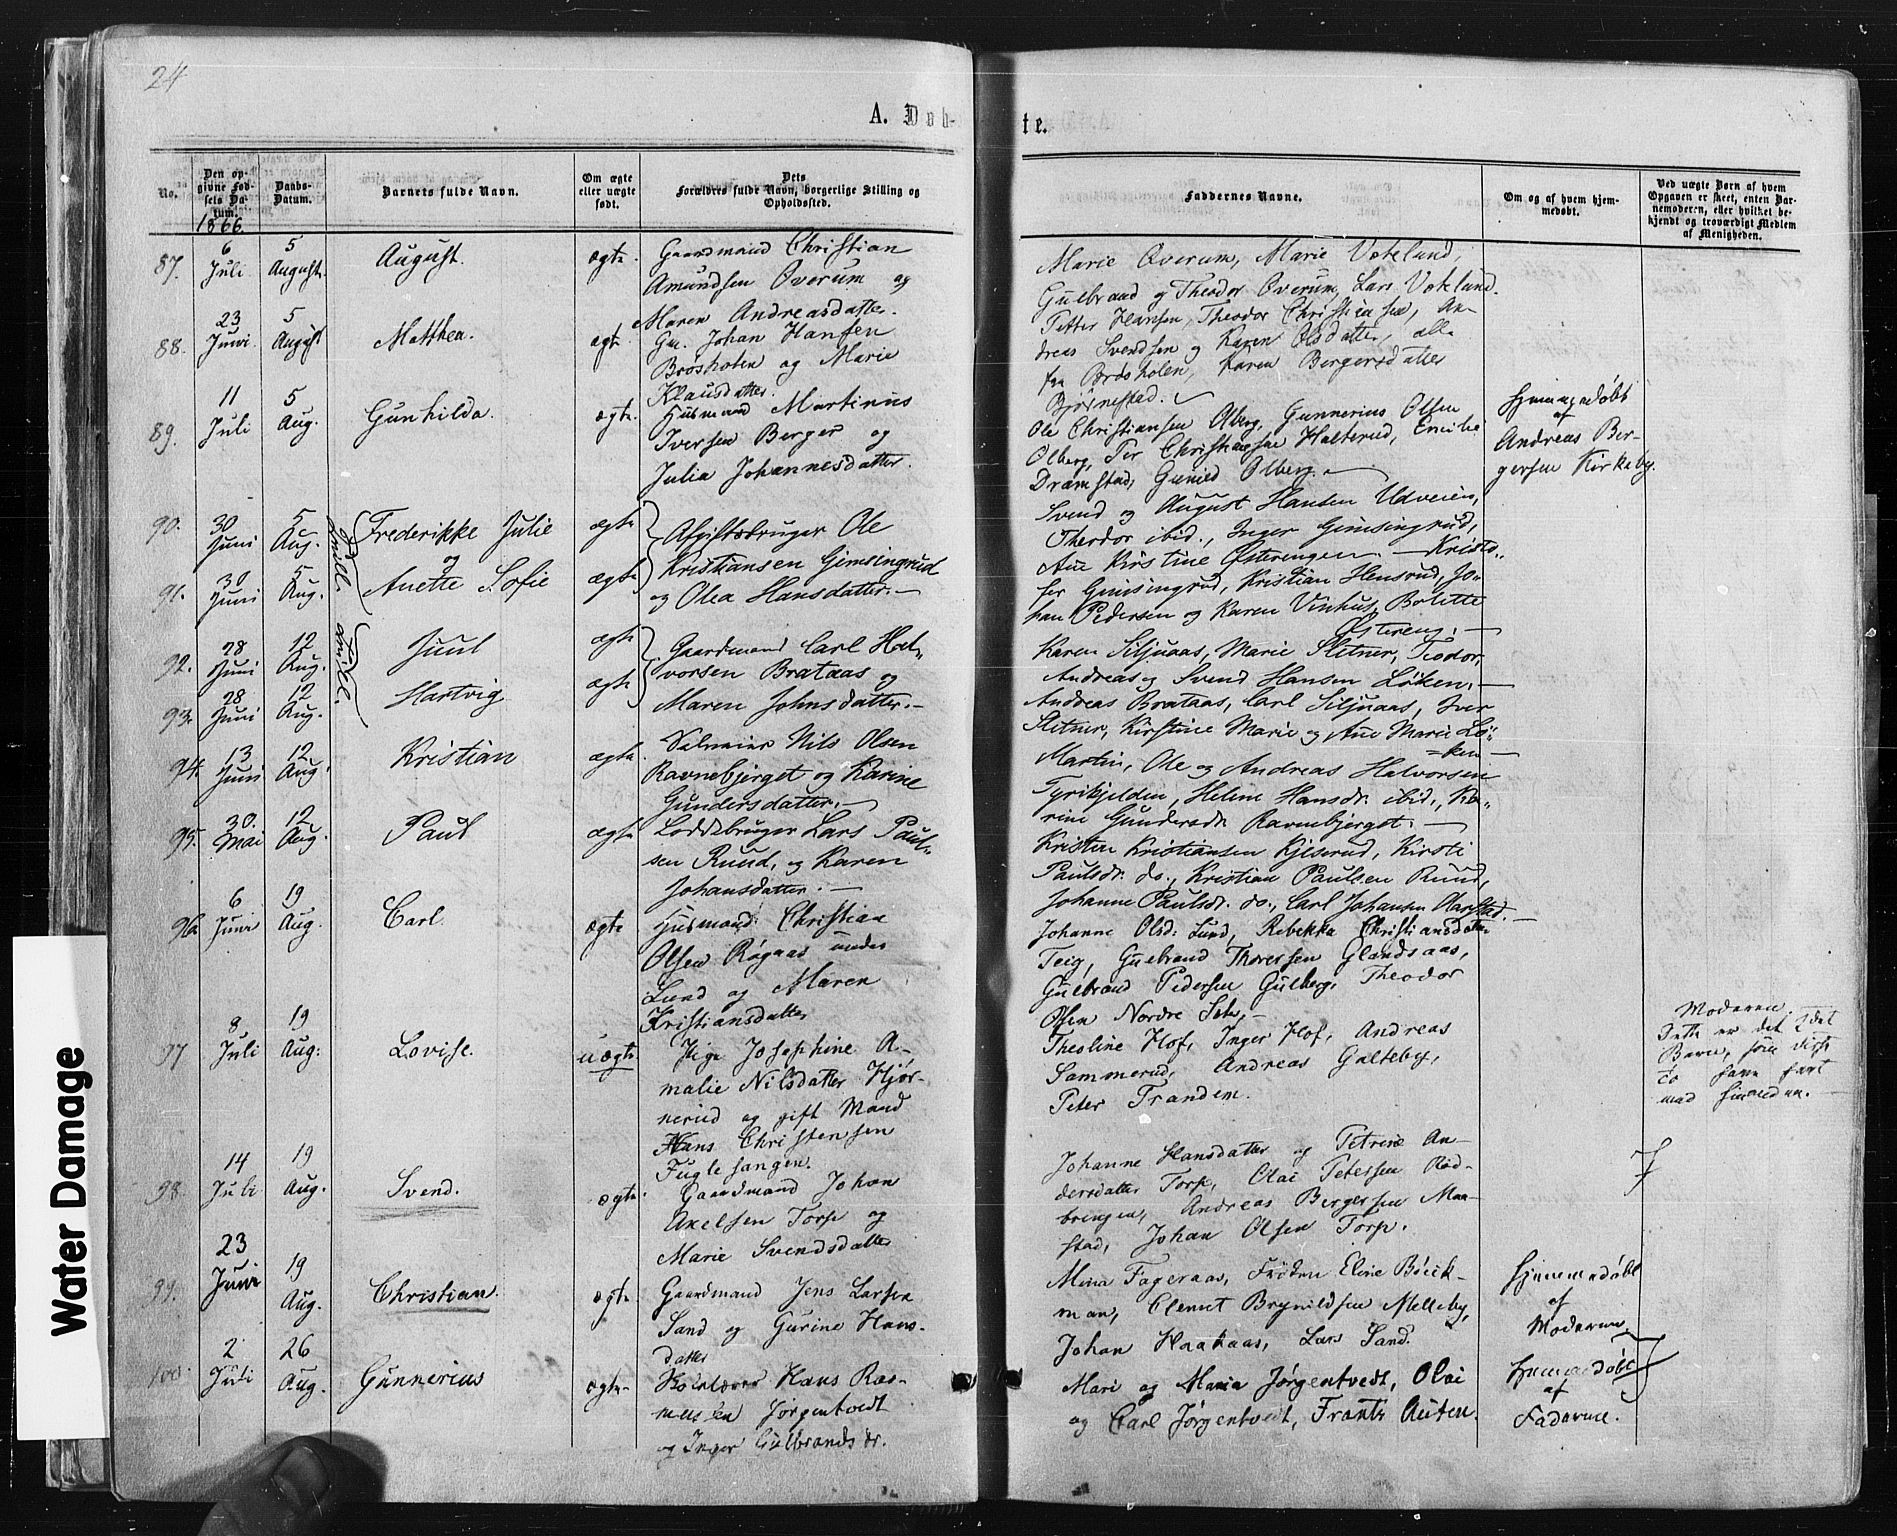 24
A. Døb-
te.
No.
Den op-
givne Fød-
sels Da-
tum.
Daabs-
Datum.
Barnets fulde Navn.
Om ægte
eller uægte
født.
Dets
Forældres fulde Navn, borgerlige Stilling og
Opholdssted.
Faddernes Navne.
Om og af hvem hjem-
medøbt.
Ved uægte Børn af hvem
Opgaven er skeet, enten Bar-
nemoderen, eller hvilket be-
kjendt og troværdigt Medlem
af Menigheden.
1866
87.
6
Juli
5
August.
August.
ægte.
Gaardmand Christian
Amundsen Overum og
Maren Andreasdatter.
Marie Overum, Marie Vøtelund,
Gulbrand og Theodor Overum, Lars Vøtelund.
88.
23
Juni.
5
August
Matthea.
ægte.
Gm. Johan Hansen
Brøsholen og Marie
Klausdatter.
Petter Hansen, Theodor Christiansen, An-
dreas Svendsen og Karen Olsdatter, alle
fra Brøsholen, Karen Bergersdatter
Bjørnestad.
89.
11
Juli
5
Aug.
Gunhilda.
ægte.
Husmand Martinus
Iversen Berger og
Julia Johannesdatter.
Ole Christiansen Olberg, Gunnerius Olsen
Olberg, Per Christiansen Halterud, Emilie
Dramstad, Gunild Olberg.
Hjemmedøbt
af
Andreas Ber-
gersen Kirkeby.
90.
30
Juni
5
Aug.
Frederikke Julie
og
ægte
Afgiftsbruger Ole
Kristiansen Gimsingrud
og Olea Hansdatter.
Svend og August Hansen Udveien,
Theodor ibid., Inger Gimsingrud,
Ane Kirstine Østerengen. Kristo-
fer Gimsingrud, Kristian Hensrud, Jo-
han Pedersen og Karen Vinhus, Bolette
Østereng.
91.
30
Juni
5
Aug.
Anette Sofie
ægte
92.
28
Juni
12
Aug.
Juul
ægte
Gaardmand Carl Hal-
vorsen Brataas og
Maren Johnsdatter.
Karen Siljuaas, Marie Slitner, Teodor,
Andreas og Svend Hansen Løken.
Andreas Brataas, Carl Siljuaas, Iver
Slitner, Kirstine Marie og Ane Marie Lø-
ken
93.
28
Juni
12
Aug.
Hartvig
ægte
94.
13
Juni
12
Aug.
Kristian
ægte
Nils Olsen
Ravnebjerget og Karine
Gundersdatter.
Martin, Ole og Andreas Halvorsen
Tyrikjelden, Helene Hansdr. ibid., Ka-
rine Gundersdr. Ravnebjerget.
95.
30.
Mai
12
Aug.
Paul
ægte
Loddebruger Lars Paul-
sen Ruud, og Karen
Johansdatter.
Kristen Kristiansen Kjeserud, Kirsti
Paulsdr. do., Kristian Paulsen Ruud,
Johanne Paulsdr. do., Carl Johansen Aarstad.
96
6
Juni
19
Aug.
Carl.
ægte
Husmand Christian
Olsen Røgaas under
Lund og Maren
Kristiansdatter
Johanne Olsd: Lund, Rebekka Christiansdatter
Teig, Gulbrand Thoresen Glandsaas,
Gulbrand Pedersen Gulberg, Theodor
Olsen Nordre Seter,
97
8
Juli
19
Aug:
Lovise.
uægte
Pige Josephine A-
malie Nilsdatter Hjør-
nerud og gift Mand
Hans Christensen
Fuglesangen.
Theoline Hof, Inger Hof, Andreas
Sammerud, Andreas Galteby,
Peter Tranden.
Moderen.
Dette er det 2det
Barn, som disse
to have havt
med hinanden.
98.
14
Juli
19
Aug.
Svend.
ægte.
Gaardmand Johan
Axelsen Torp og
Marie Svendsdatter
Johanne Hansdatter og Petrine An-
dersdatter Torp, Olai Petersen Rød-
bringen, Andreas Bergersen Maa-
stad, Johan Olsen Torp.
99.
23
Juni
19
Aug.
Christian.
ægte.
Gaardmand Jens Larsen
Sand og Gurine Hans-
datter
Mina Fageraas, Frøken Eline Bøck-
man, Clemet Brynildsen Melleby,
Johan Haakaas, Lars Sand.
Hjemmedøbt
af
Moderen.
100.
2
Juli
26
Aug.
Gunnerius
ægte.
Hans Ras-
mussen Jørgentvedt
og Inger Gulbrandsdr.
Mari og Maria Jørgentvedt, Olai
og Carl Jørgentvedt, Frants Auten.
Hjemmedøbt
af
Faderen.
Water Damage